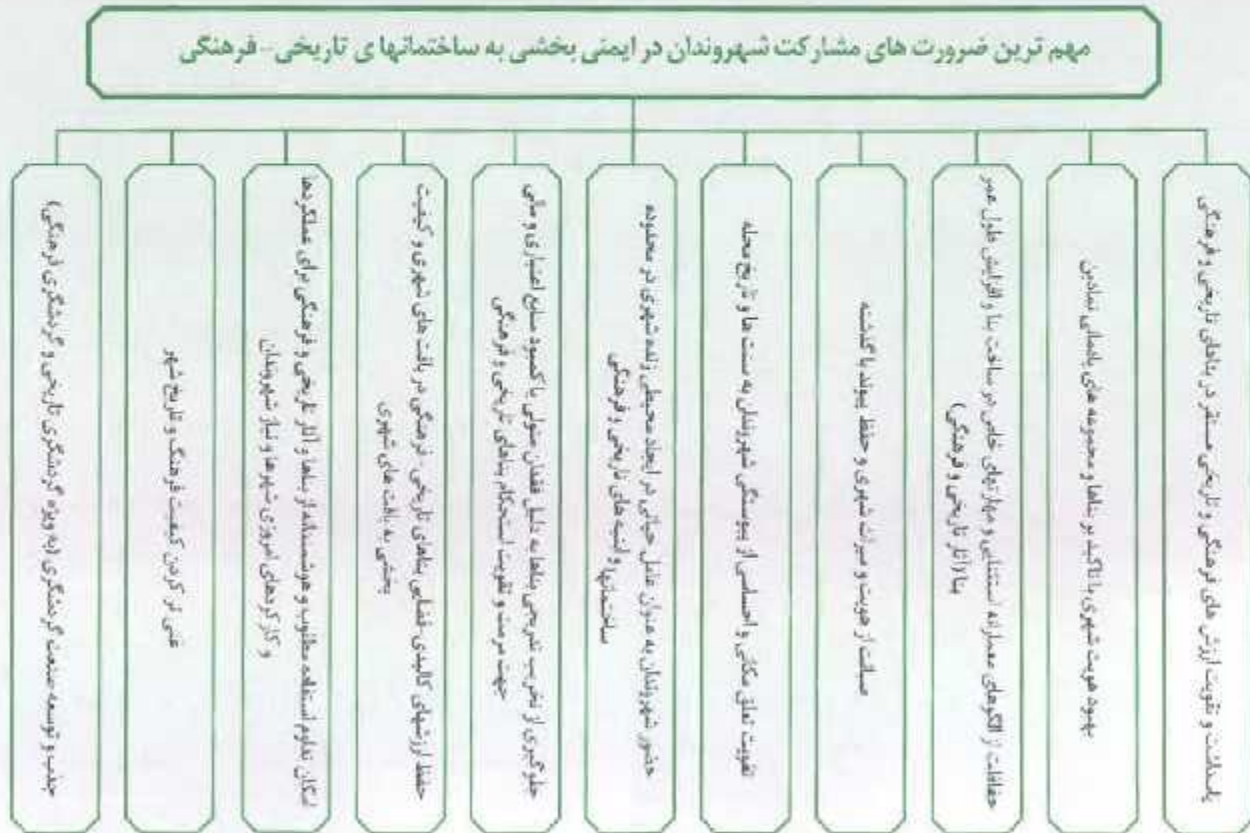 مهم ترین ضرورت های مشارکت شهروندان در ایمنی بخشی به ساختمانها ی تاریخی- فرهنگی
پاسداشت و تقویت ارزش های فرهنگی و تاریخی مستقر در بناهای تاریخی و فرهنگی
بهبود هویت شهری با تاکید بر بناها و مجموعه های یادمانی نمادین
حفاظت از الگوهای معمارانه استثنایی و مهارتهای خاص در ساخت بنا و افزایش طول عمر
بنا (آثار تاریخی و فرهنگی)
صیانت از هویت و میراث شهری و حفظ پیوند با گذشته
تقویت تعلق مکانی و احساسی از پیوستگی شهروندان به سنت ها و تاریخ محله
حضور شهروندان به عنوان عامل حیاتی در ایجاد محیطی زنده شهری در محدوده
ساختمانها و ابنیه های تاریخی و فرهنگی
جلوگیری از تخریب تدریجی بناها به دلیل فقدان متولی یا کمبود منابع اعتباری و مالی
جهت مرمت و تقویت استحکام بناهای تاریخی و فرهنگی
حفظ ارزشهای کالبدی-فضایی بناهای تاریخی- فرهنگی در بافت های شهری و کیفیت
بخشی به بافت های شهری
امکان تداوم استفاده مطلوب و هوشمندانه از بناها و آثار تاریخی و فرهنگی برای عملکردها
و کارکردهای امروزی شهرها و نیاز شهروندان
غنی تر کردن کیفیت فرهنگ و تاریخ شهر
جذب و توسعه صنعت گردشگری (به ویژه گردشگری تاریخی و گردشگری فرهنگی)